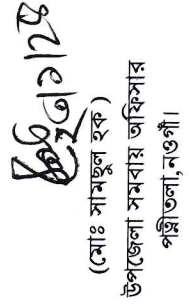 (মোঃ সামছুল হক)
উপজেলা সমবায় অফিসার
পত্নীতলা,নওগাঁ।